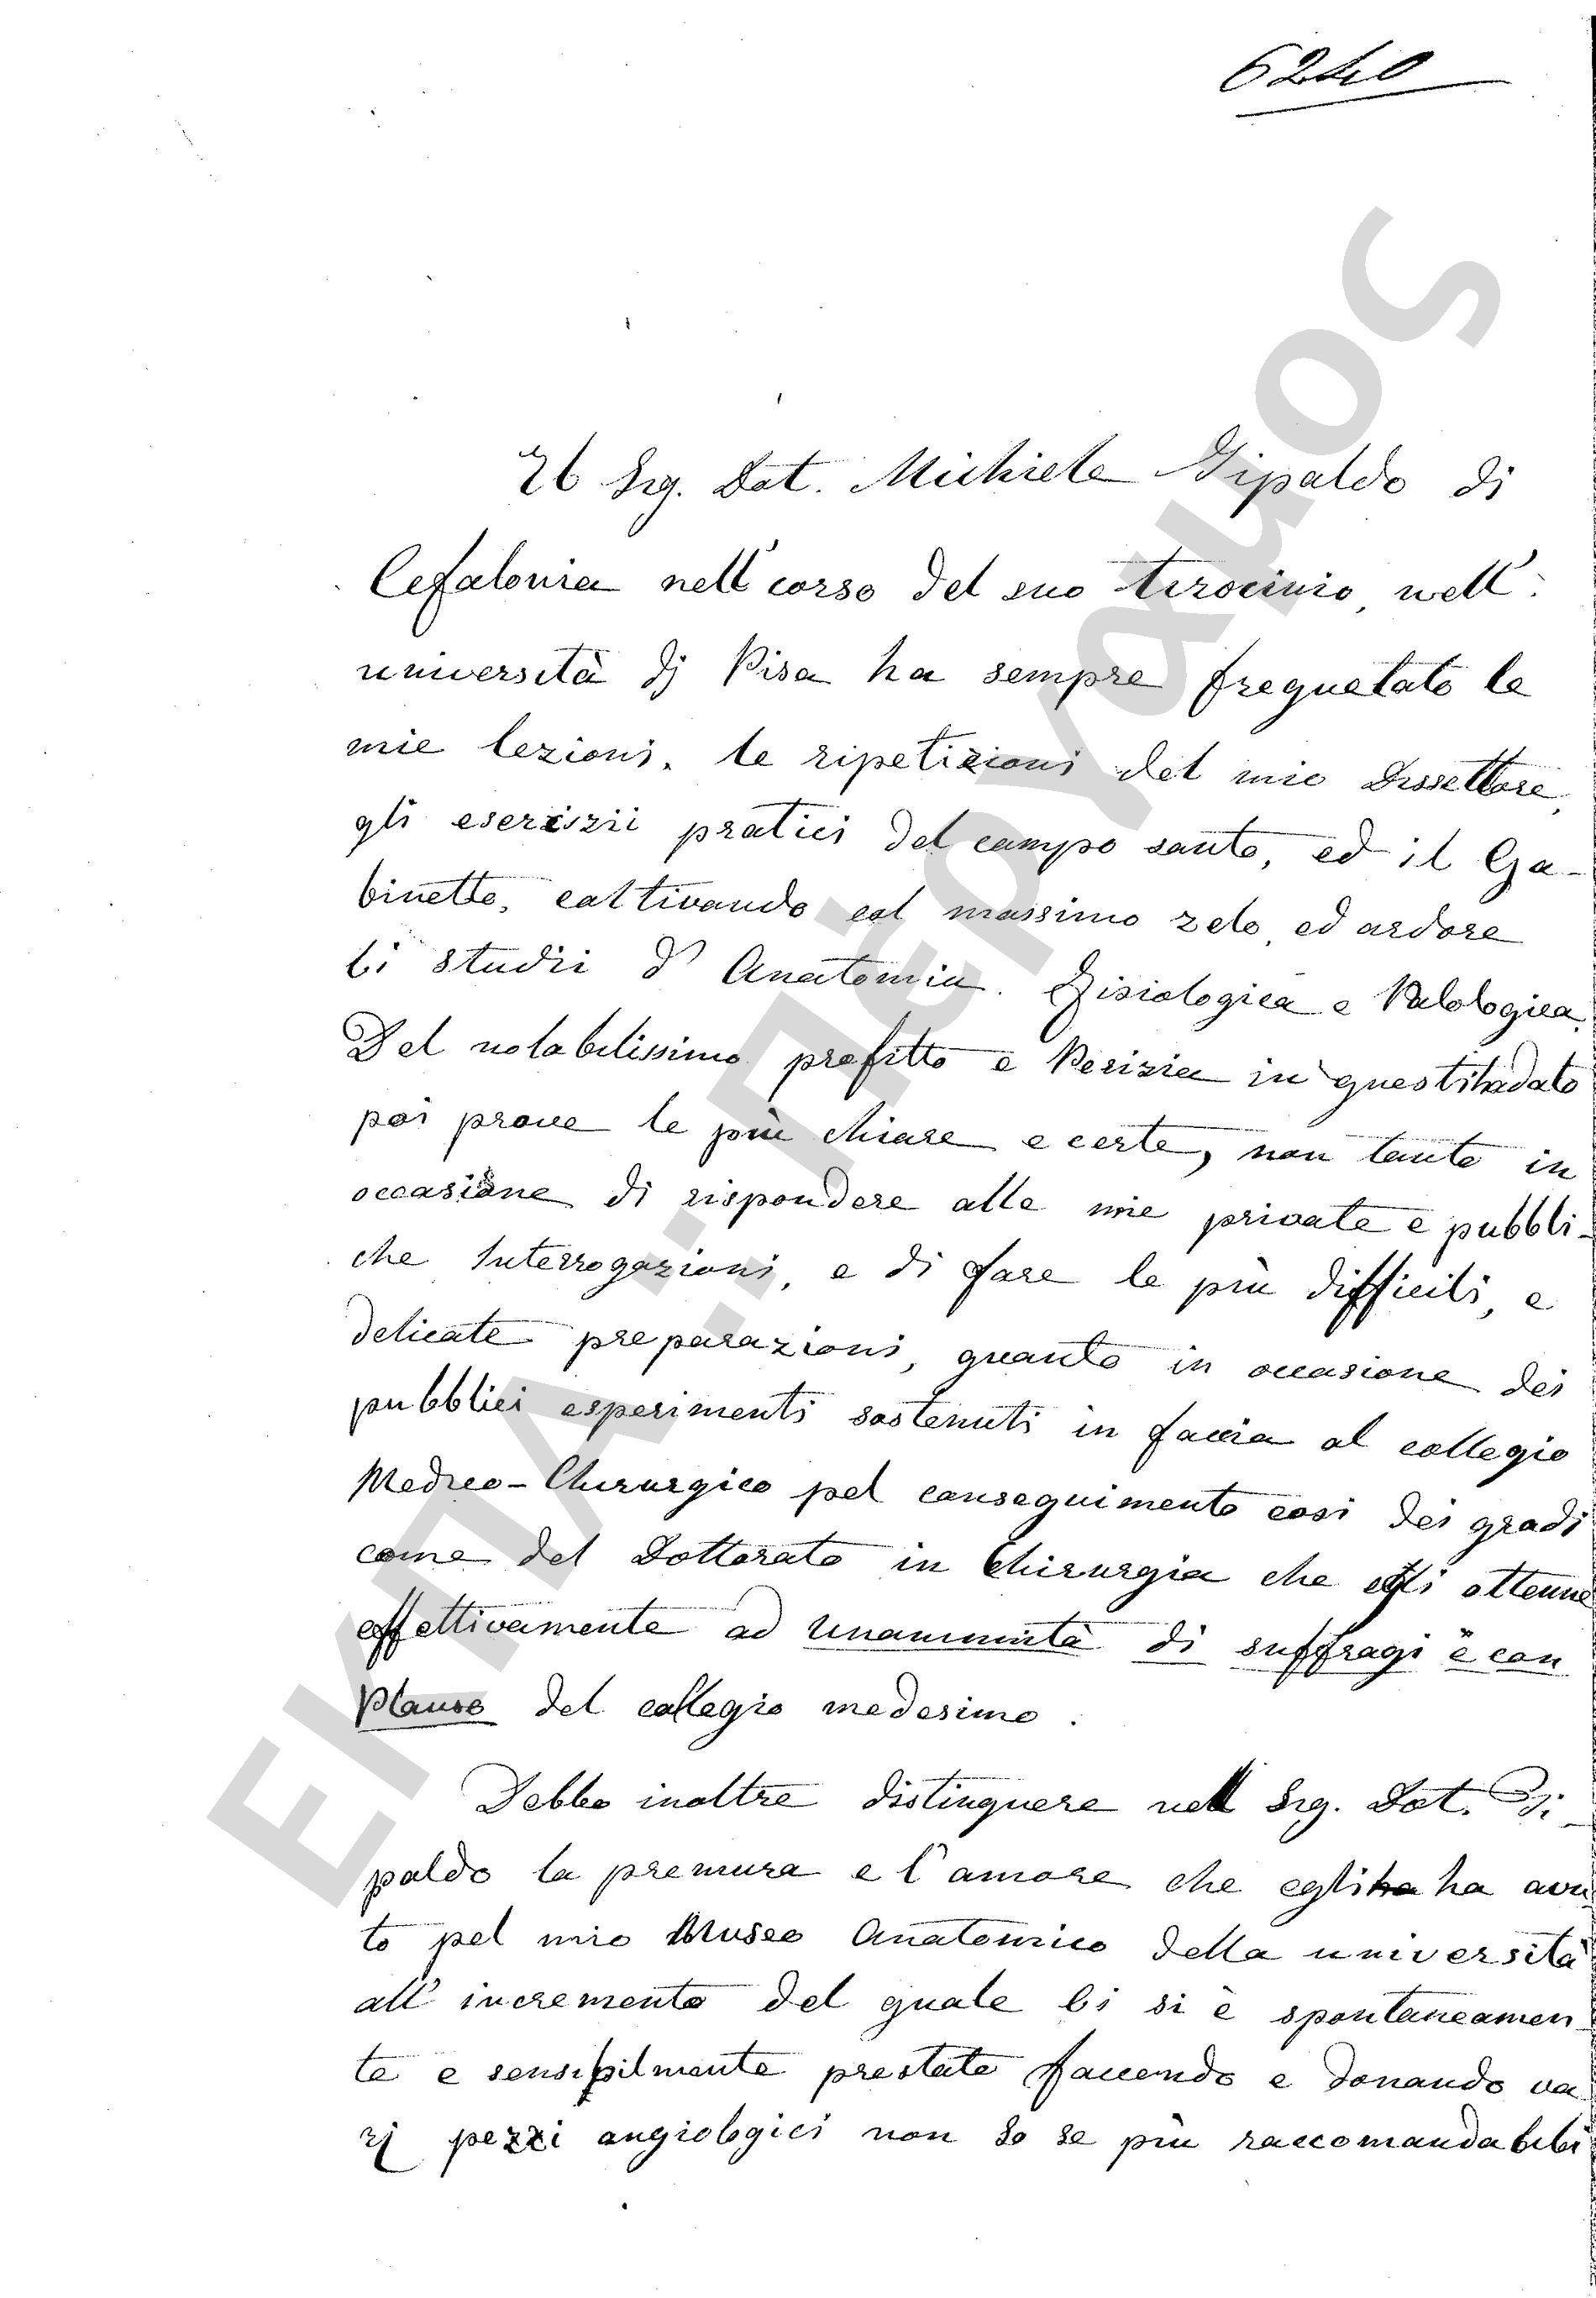 6240
Il Sig. Dot. Michiele Gipaldo di
Cefalonia nell corso del suo tirocinio, nell'
università di Pisa ha sempre frequetato le
mie lezioni, le ripetizioni del mio Dissettore,
gli esercizii pratici del campo santo, ed il Ga-
binetto, coltivando col massimo zelo, ed ardore
li studii d' Anatomia. Fisiologica e Patologica.
Del notabilissimo profitto e Perizia in questi ha dato
poi prove le più chiare e certe, non tanto in
occasione di rispondere alle mie private e pubbli-
che Interrogazioni, e di fare le più difficili, e
delicate preparazioni, quanto in occasione dei
pubblici esperimenti sostenuti in faccia al collegio
Medico-Chirurgico pel conseguimento così dei gradi
come del Dottorato in Chirurgia che egli ottenne
effettivamente ad unanimità di suffragi e con
Plauso del collegio medesimo.
Debbo inoltre distinguere nell Sig. Dot. Gi-
paldo la premura e l'amore che egli ha avu
to pel mio Museo Anatomico della università
all' incremento del quale li si è spontaneamen
te e sensibilmente prestato facendo e donando va
rj pezzi angiologici non so se più raccomandabili
ΕΚΠΑ :: Πέργαμος